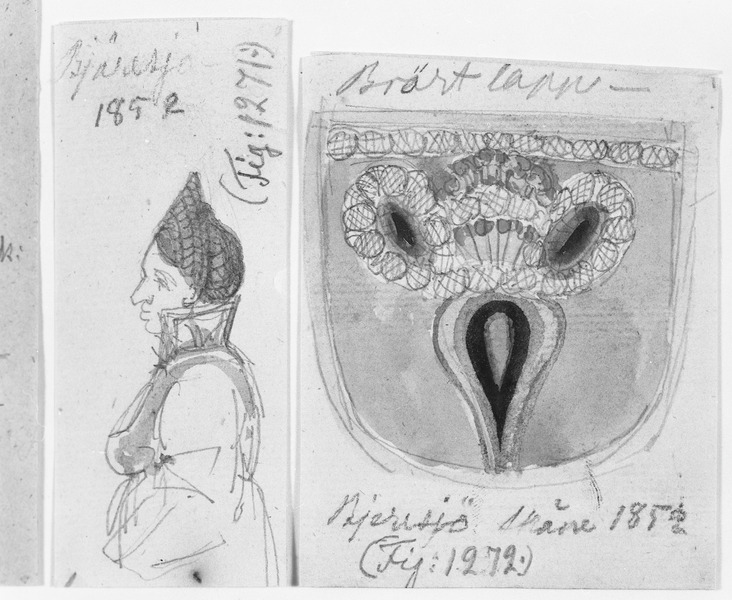 Bjäresjö
1852
(Fig: 1271:)
Bröstlapp
Bjeresjö Skåne 1852
(Fig: 1272:)
k: